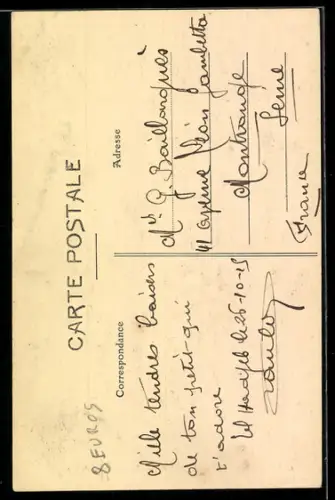 CARTE POSTALE
8 EUROS
Correspondance
Mille tendres baisers
de ton petit qui
t'adore
El Hadjeb le 26-10-15
Adresse
Mr G. Baillargués
41 avenue Léon Gambetta
Montrouge
Seine
France